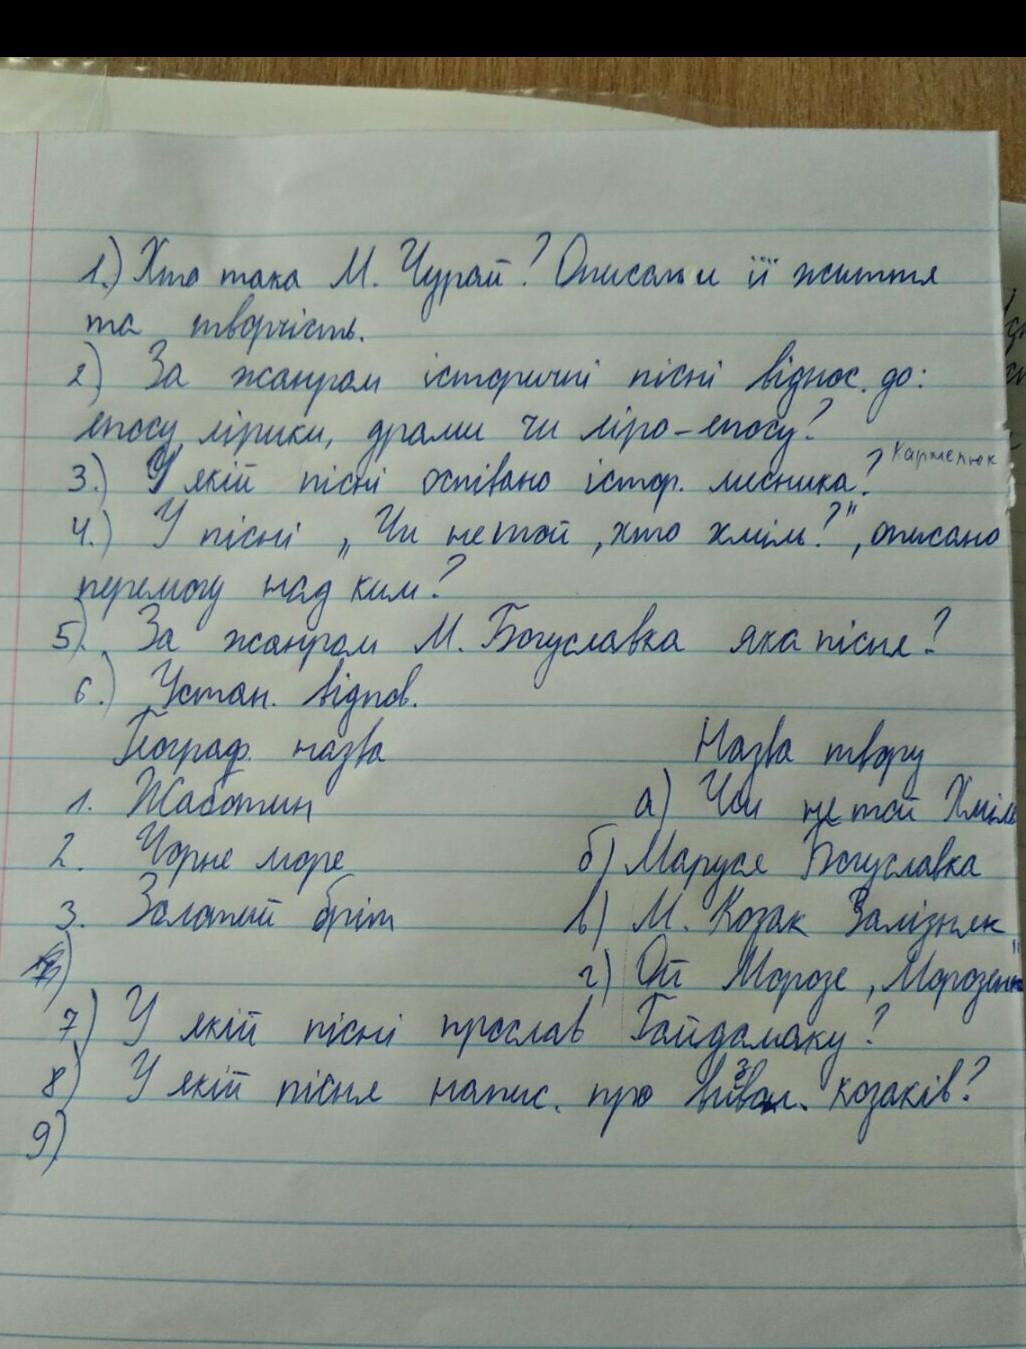 1.) Хто така М. Чурай? Описати її життя
та творчість.
2) За жанром історичні пісні віднос. до:
епосу, лірики, драми чи ліро-епосу?
3.) У якій пісні оспівано істор. месника? Кармелюк
4.) У пісні „Чи не той, хто хміль?", описано
перемогу над ким?
5). За жанром М. Богуславка яка пісня?
6.) Устан. відпов.
Географ. назва Назва твору
1. Жаботин а) Чи не той Хміль
2. Чорне море б) Маруся Богуславка
3. Золотий брід в) М. Козак Залізняк
г) Ой Морозе, Морозенку"
7) У якій пісні прослав Гайдамаку?
8) У якій пісня напис. про визвол. козаків?
9)